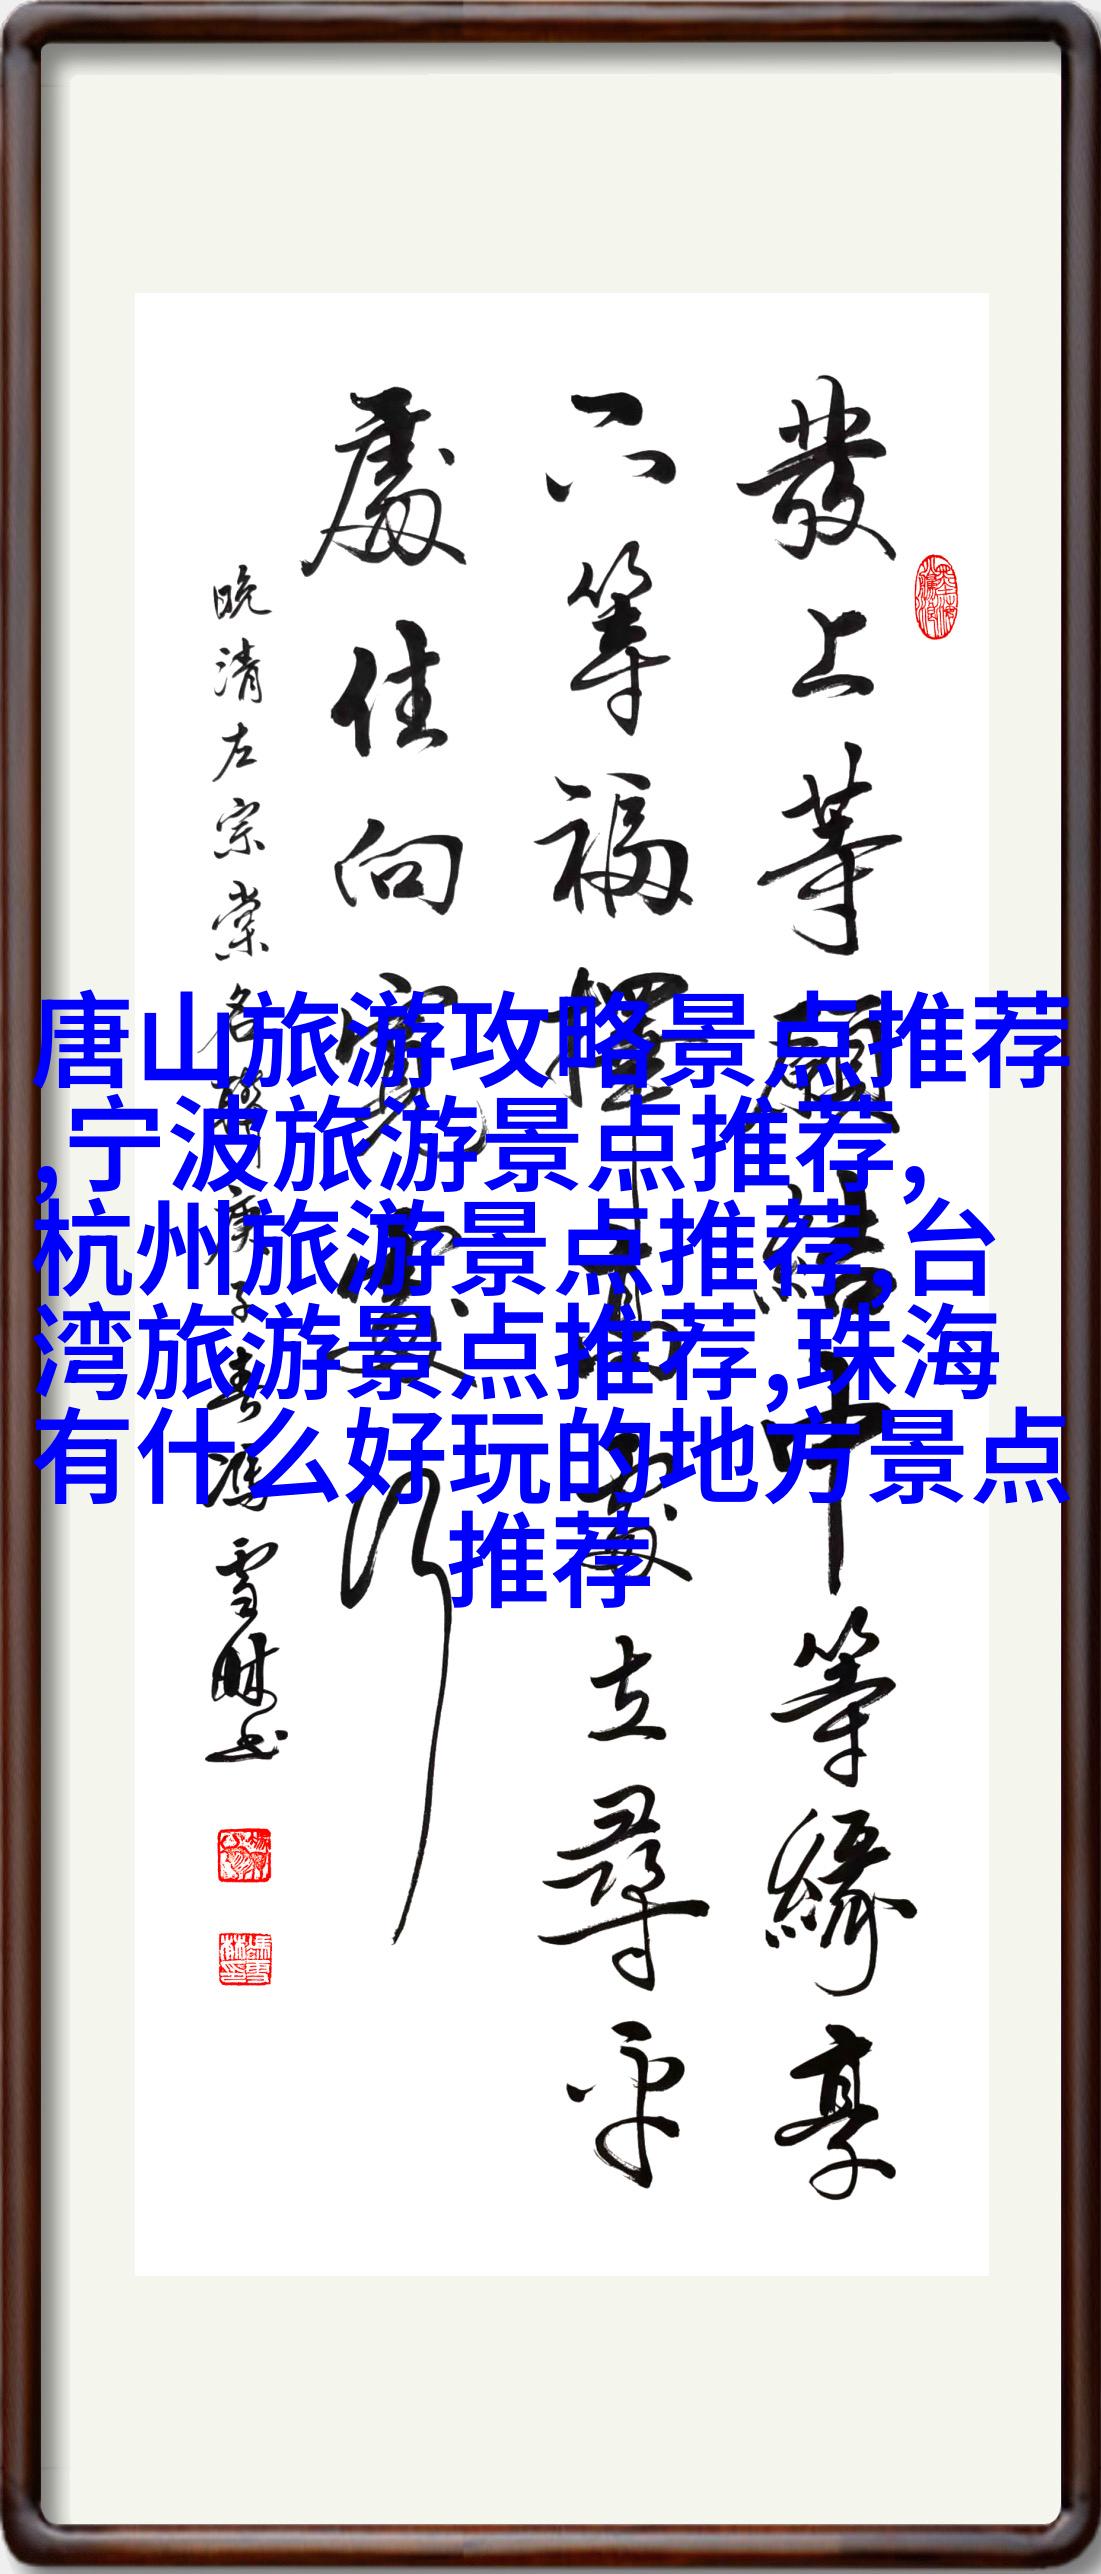 發上等願結中等緣享
下等福擇高處立尋平
處住向寬處行
晚清左宗棠名聯庚子春馮雪林书
唐山旅游攻略景点推荐
,宁波旅游景点推荐,
杭州旅游景点推荐,台
湾旅游景点推荐,珠海
有什么好玩的地方景点
推荐